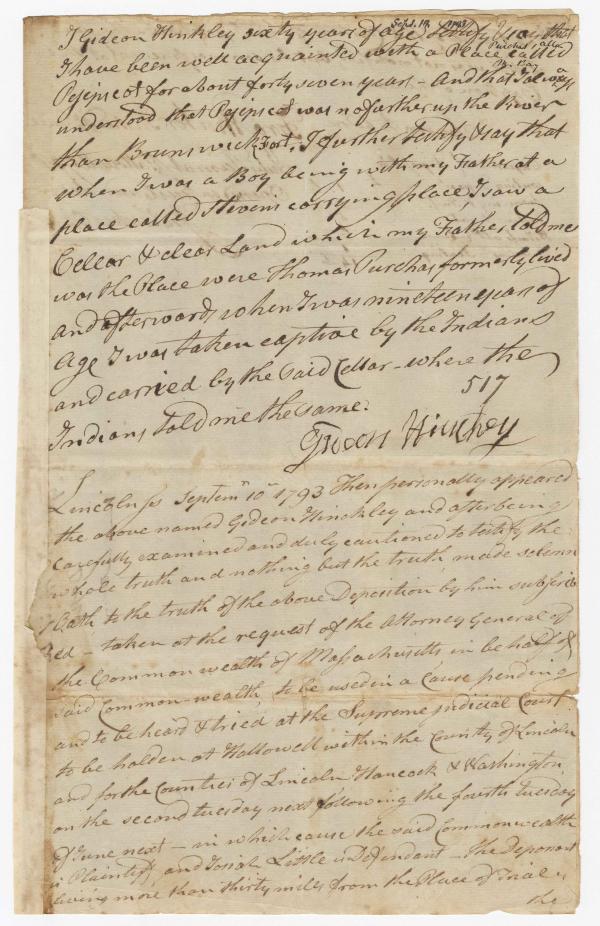 I Gideon Hinkley sixty years of age testify & say that
Sept. 10, 1793
I have been well acquainted with a Place called
Purchas, alias
Way
Pejepscot for about forty seven years - And that I always
understood that Pejepscot was no further up the River
than Brunswick Fort, I further testify & say that
when I was a Boy being with my Father at a
place called Stevens carrying place, I saw a
Cellar & clear Land which my Father told me
was the Place were Thomas Purchas formerly lived
and afterwards when I was nineteen years of
Age I was taken captive by the Indians
and carried by the said Cellar - where the
517
Indians told me the same.
Gideon Hinckley
Lincoln ss Septemr 10th 1793 Then personally appeared
the above named Gideon Hinckley and after being
carefully examined and duly cautioned to testify the
whole truth and nothing but the truth, made solemn
Oath to the truth of the above Deposition by him subscrib
ed - taken at the request of the Attorney General of
the Common wealth of Massachusetts in behalf of
said Common-wealth, to be used in a Cause pending
and to be heard & tried at the Supreme judicial Court
to be holden at Hallowell within the County of Lincoln
and for the Counties of Lincoln Hancock & Washington
on the second tuesday next following the fourth tuesday
of June next - in which cause the said Commonwealth
is Plaintiff, and Josiah Little is Defendant - The Deponent
living more than thirty miles from the Place of trial is
the